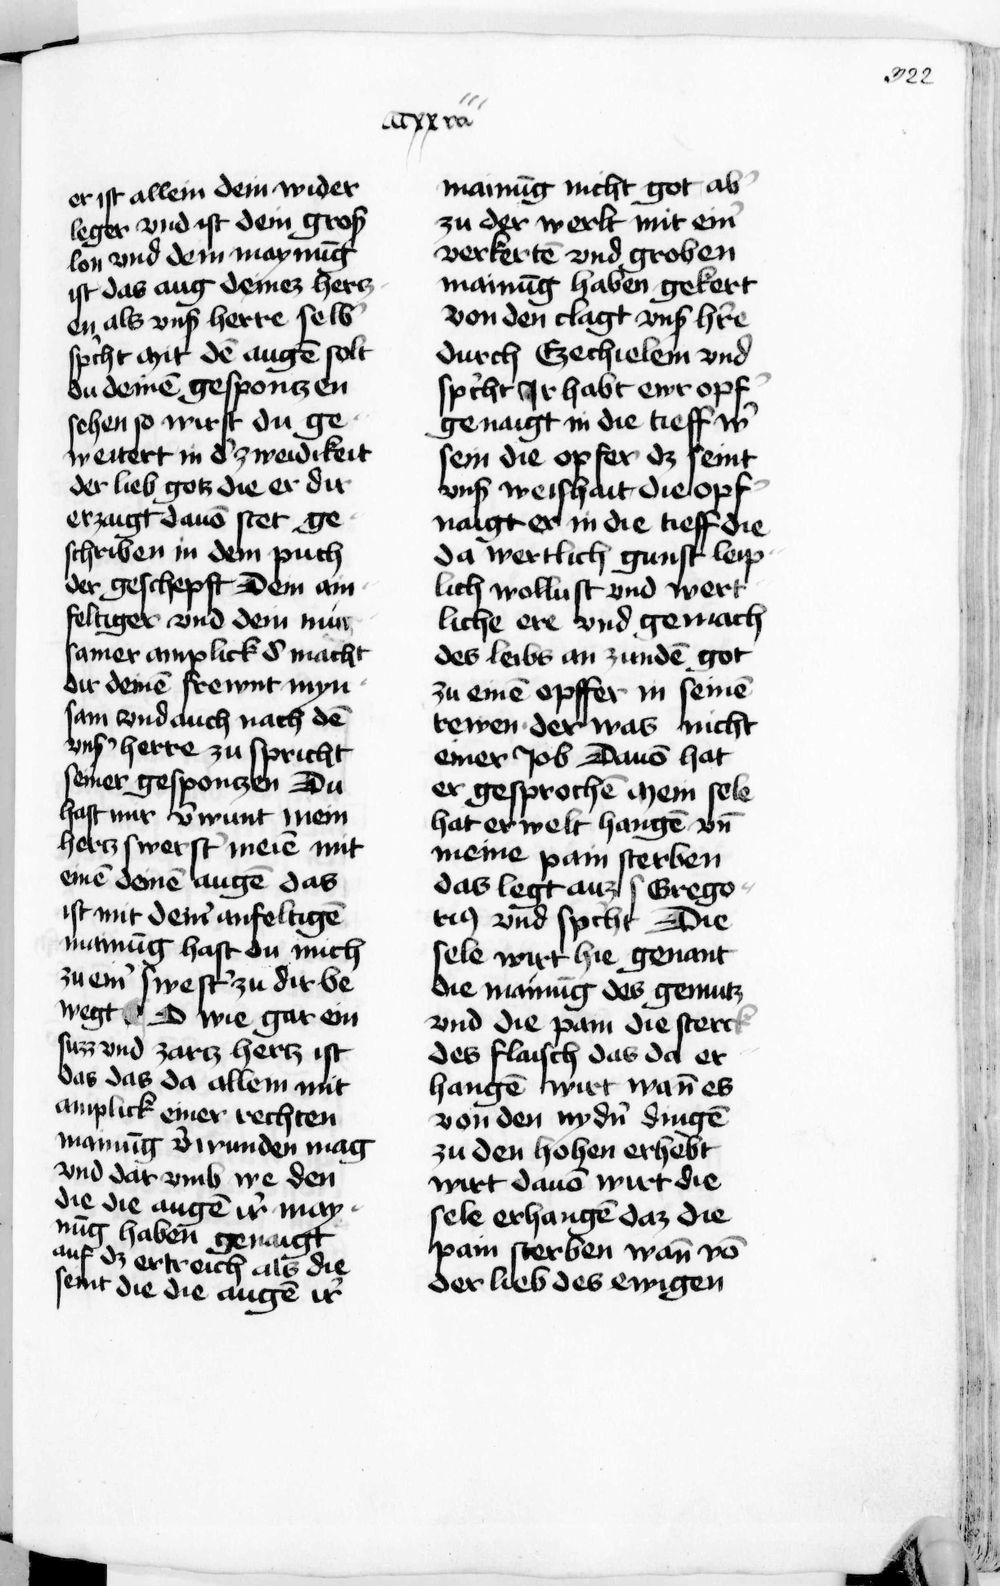 322
CCxxviii
er ist allein dein wider
leger vnd ist dein groß
lon vnd dein maynūg
ist das aug deinez hercz
en als vnß herre selb̛
sp̃cht Mit dē augē solt
du deinē gesponczen
sehen so wirst du ge
weitert in d̛ zweidikeit
der lieb gotz die er dir
erzaigt dauō stet ge
schriben in dem puch
der geschepft Dein ain
feltiger vnd dein min
samer anplick d̛ macht
dir deinē frewnt myn
sam vnd auch nach dē
vnß herre zu spricht
seiner gesponczen Du
hast mir v̛wunt mein
hercz swerst̛ meiē mit
einē deinē augē das
ist mit dem̃ ainfeltigē
mainūg hast du mich
zu ein̛ swest̛ zu dir be
wegt O wie gar ein
suzz vnd zarcz hercz ist
das das da allein mit
anplick einer rechten
mainūg v̛wunden mag
vnd dar vmb we den
die die augē ir̛ may
nūg haben genaigt
auf dz ertreich als die
seint die die augē ir̛
mainūg nicht got ab̛
zu der werlt mit ein̛
verkertē vnd groben
mainūg haben gekert
von den clagt vnß hr̃e
durch Ezechielem vnd
sp̃cht Ir habt ewr opf̛
genaigt in die tieff w̛
sein die opfer dz seint
vnß weishait die opf̛
naigt er in die tieff die
da wertlich gunst leip
lich wollust vnd wert
liche ere vnd gemach
des leibs an zundē got
zu einē opffer in seinē
rewen der was nicht
einer Job Dauō hat
er gesprochē Mein sele
hat erwelt hangē vn̄
meine pain sterben
das legt auz s Grego
rius vnd sp̃cht Die
sele wirt hie genant
die mainūg des gemutz
vnd die pain die sterck
des flaisch das da er
hangē wirt wan̄ es
von den nydn̛ dingē
zu den hohen erhebt
wirt dauō wirt die
sele erhangē daz die
pain sterben wan̄ vō
der lieb des ewigen